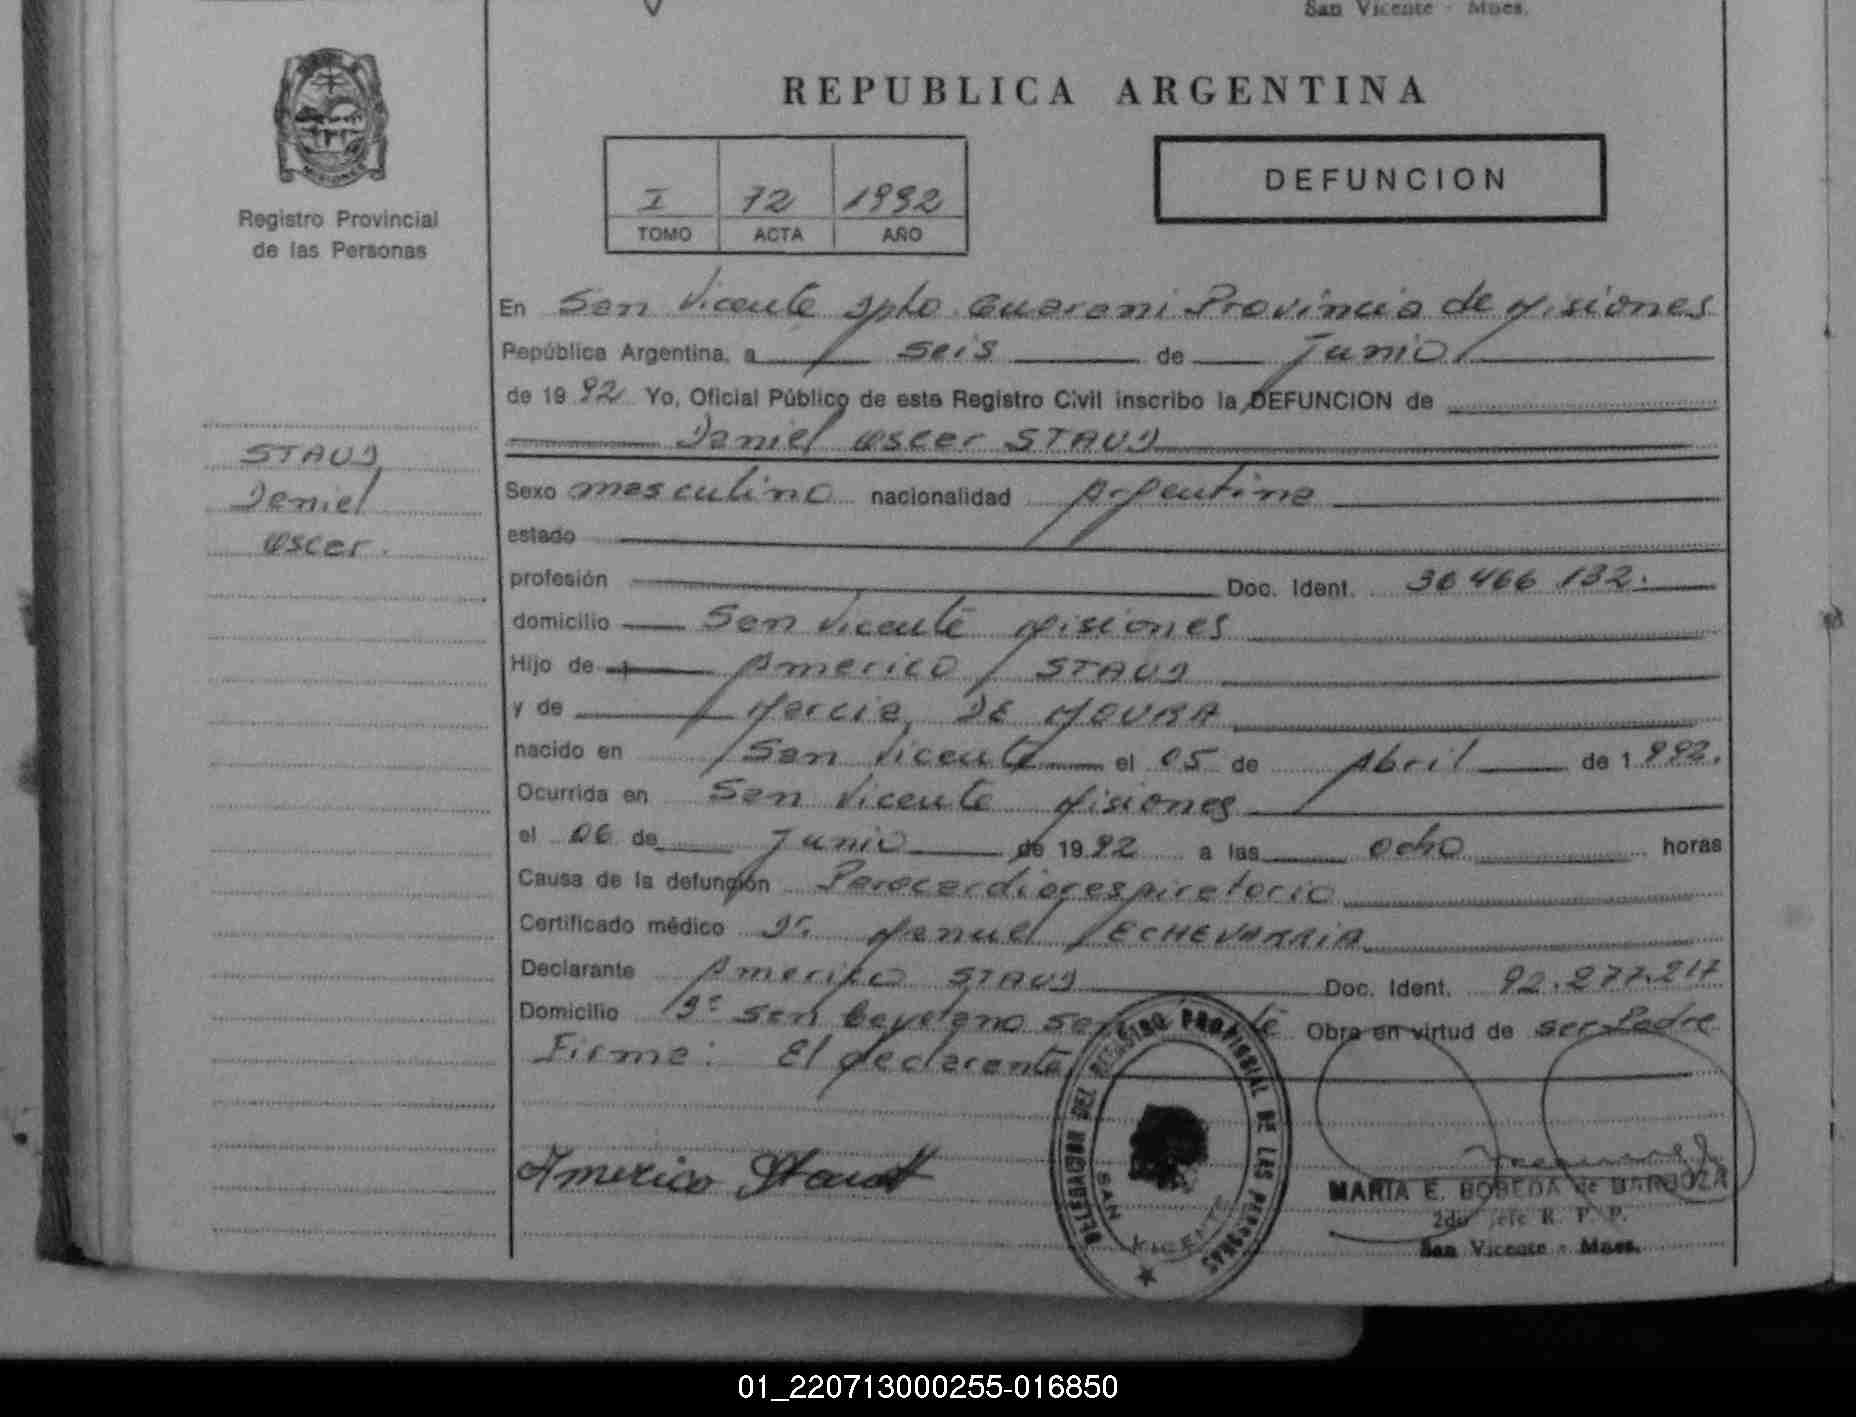 San Vicente - Mnes.
REPUBLICA ARGENTINA
I 72 1992
TOMO ACTA AÑO
DEFUNCION
MISIONES
Registro Provincial
de las Personas
En San Vicente Dpto. Guarani Provincia de Misiones
República Argentina, a seis de Junio
de 1992 Yo, Oficial Público de este Registro Civil inscribo la DEFUNCION de
Daniel Oscar STAUD
STAUD
Daniel
Oscar.
Sexo masculino nacionalidad Argentina
estado
profesión Doc. Ident. 36 466 132.
domicilio San Vicente Misiones
Hijo de Americo STAUD
y de Marcia DE MOURA
nacido en San Vicente el 05 de Abril de 1992.
Ocurrida en San Vicente Misiones
el 06 de Junio de 1992 a las ocho horas
Causa de la defunción Parocardiorespiratorio
Certificado médico Dr. Manuel ECHEVARRIA
Declarante Americo STAUD Doc. Ident. 92.277.217
Domicilio Bº San Cayetano Obra en virtud de ser Padre
Firma: El declarante
Americo Staudt
DELEGACION DEL REGISTRO PROVINCIAL DE LAS PERSONAS
SAN VICENTE
MARIA E. BOBEDA de BARBOZA
2do Jefe R. P. P.
San Vicente - Mnes.
01_220713000255-016850